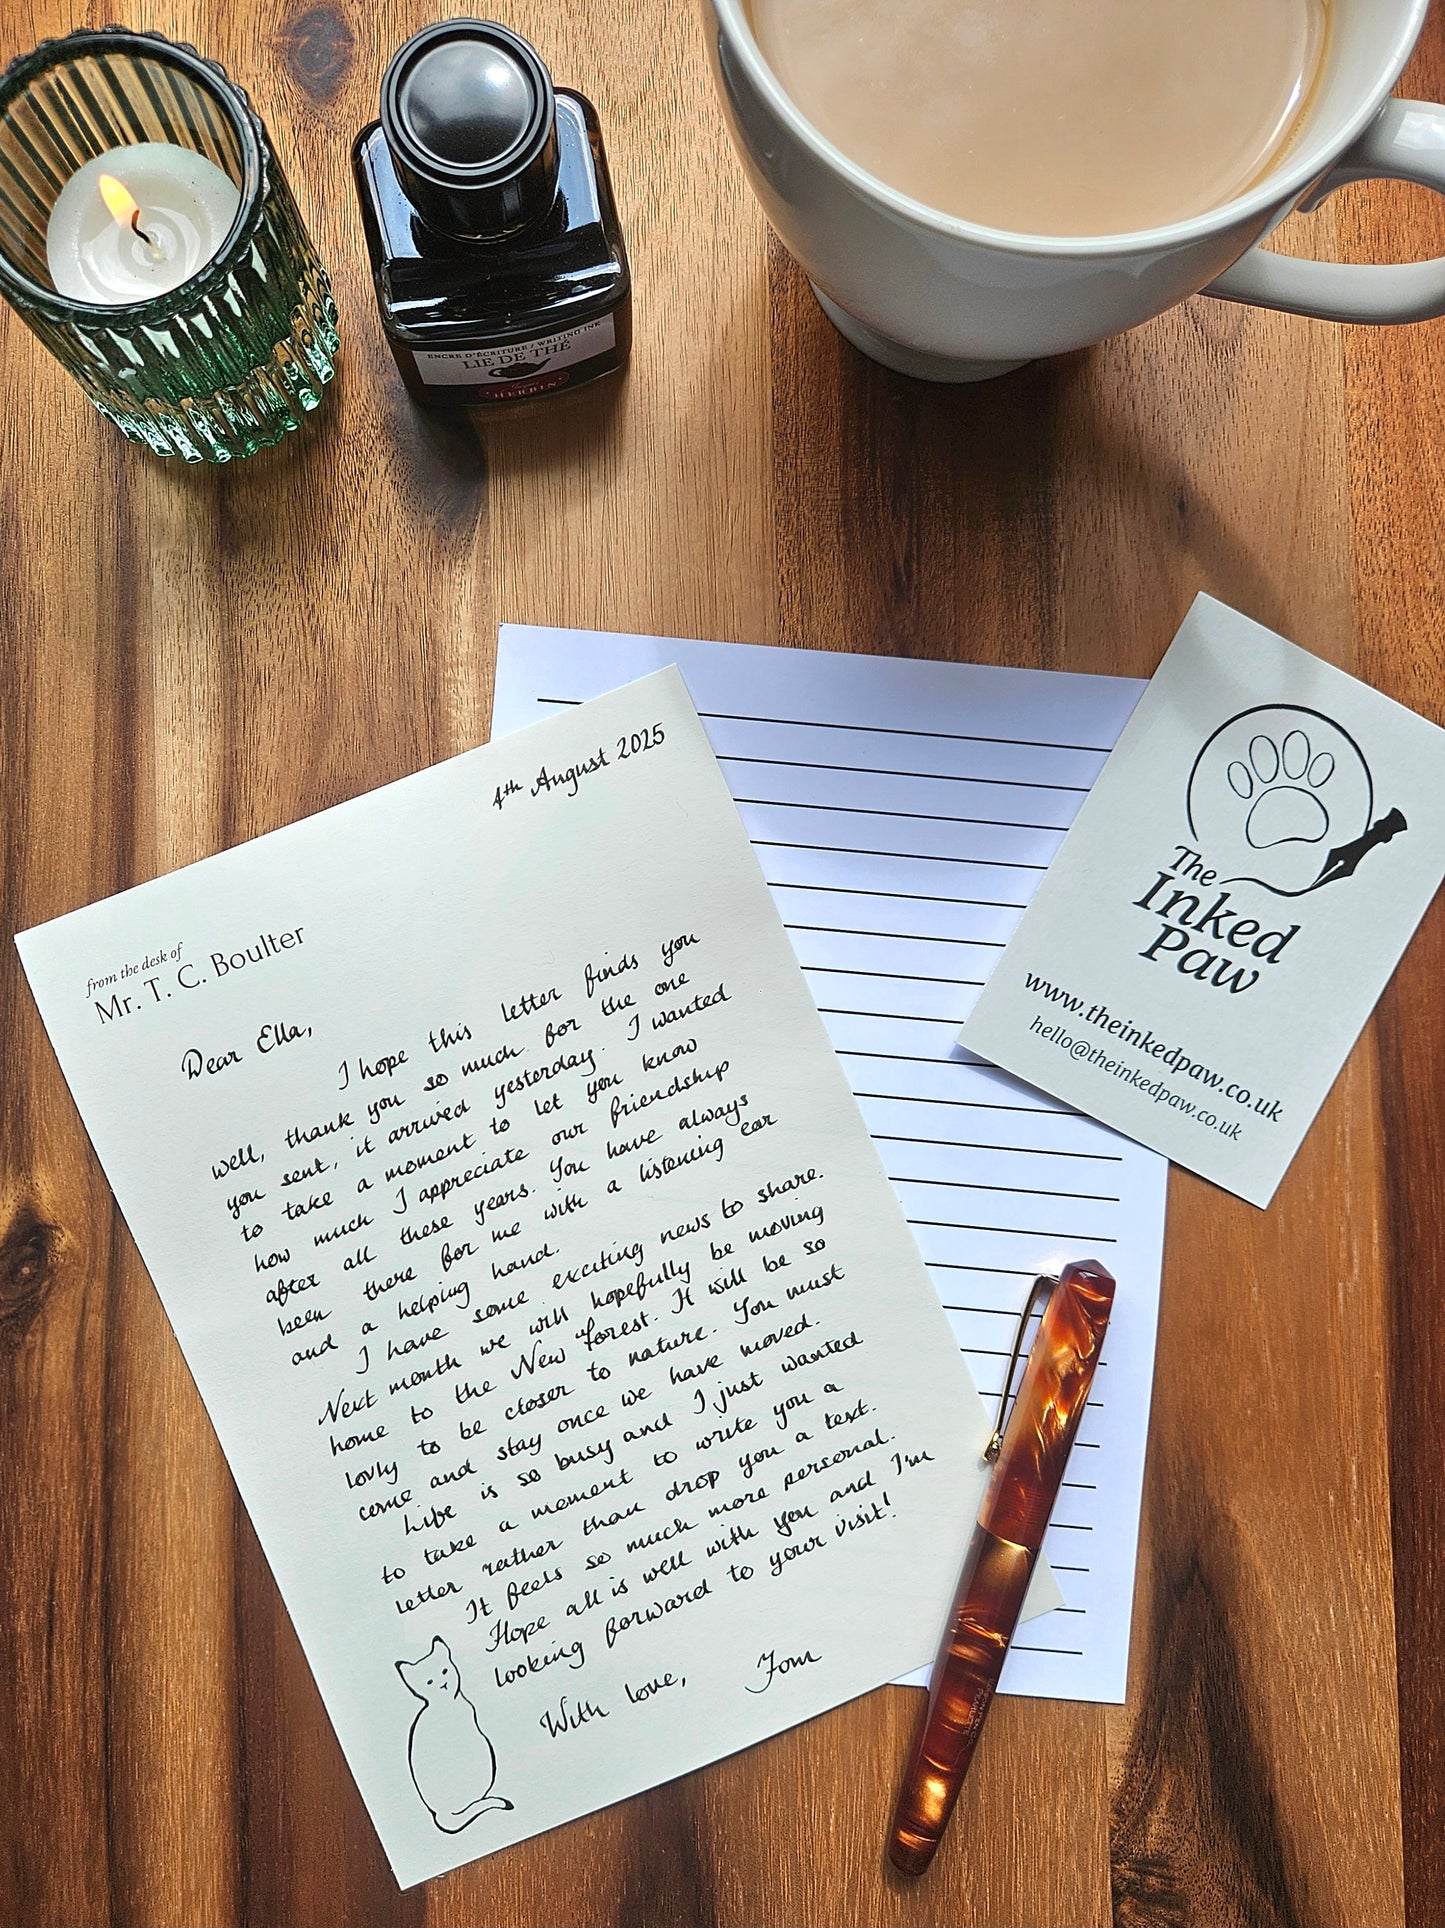 ENCRE D'ÉCRITURE / WRITING INK
LIE DE THÉ
HERBIN
4th August 2025
from the desk of
Mr. T. C. Boulter
Dear Ella,
I hope this letter finds you
well, thank you so much for the one
you sent, it arrived yesterday. I wanted
to take a moment to let you know
how much I appreciate our friendship
after all these years. You have always
been there for me with a listening ear
and a helping hand.
I have some exciting news to share.
Next month we will hopefully be moving
home to the New Forest. It will be so
lovly to be closer to nature. You must
come and stay once we have moved.
Life is so busy and I just wanted
to take a moment to write you a
letter rather than drop you a text.
It feels so much more personal.
Hope all is well with you and I'm
looking forward to your visit!
With love, Tom
The
Inked
Paw
www.theinkedpaw.co.uk
hello@theinkedpaw.co.uk